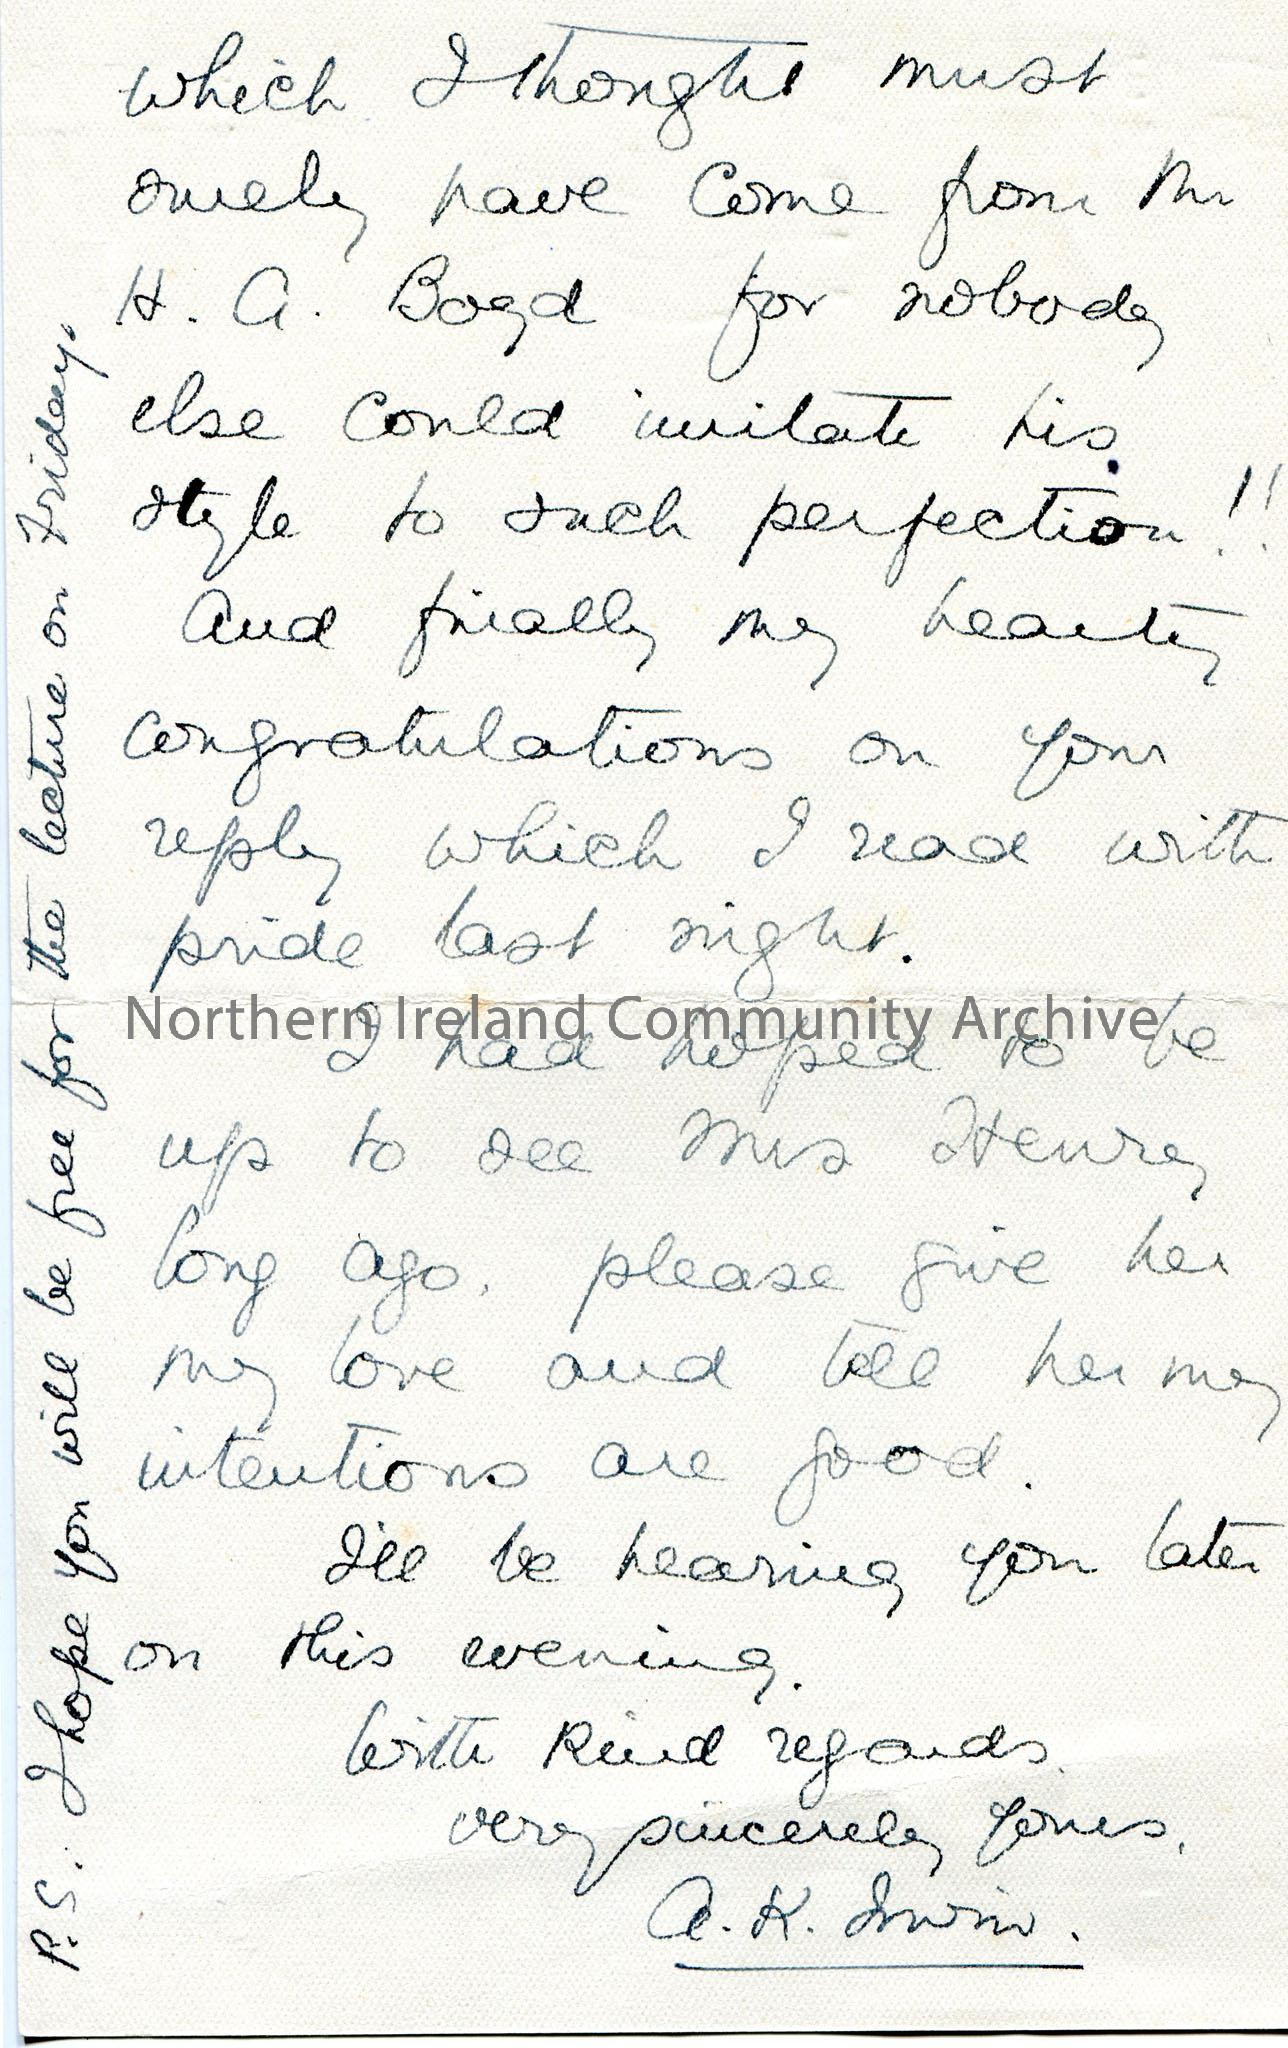 which I thought must
surely have come from Mr
H. A. Boyd for nobody
else could imitate his
style to such perfection!!
And finally my hearty
congratulations on your
reply which I read with
pride last night.
Northern Ireland Community Archive
I had hoped to be
up to see Mrs Henry
long ago. please give her
my love and tell her my
intentions are good.
I'll be hearing you later
on this evening.
With kind regards.
very sincerely yours.
A. K. Irwin.
P.S. I hope you will be free for the lecture on Friday.